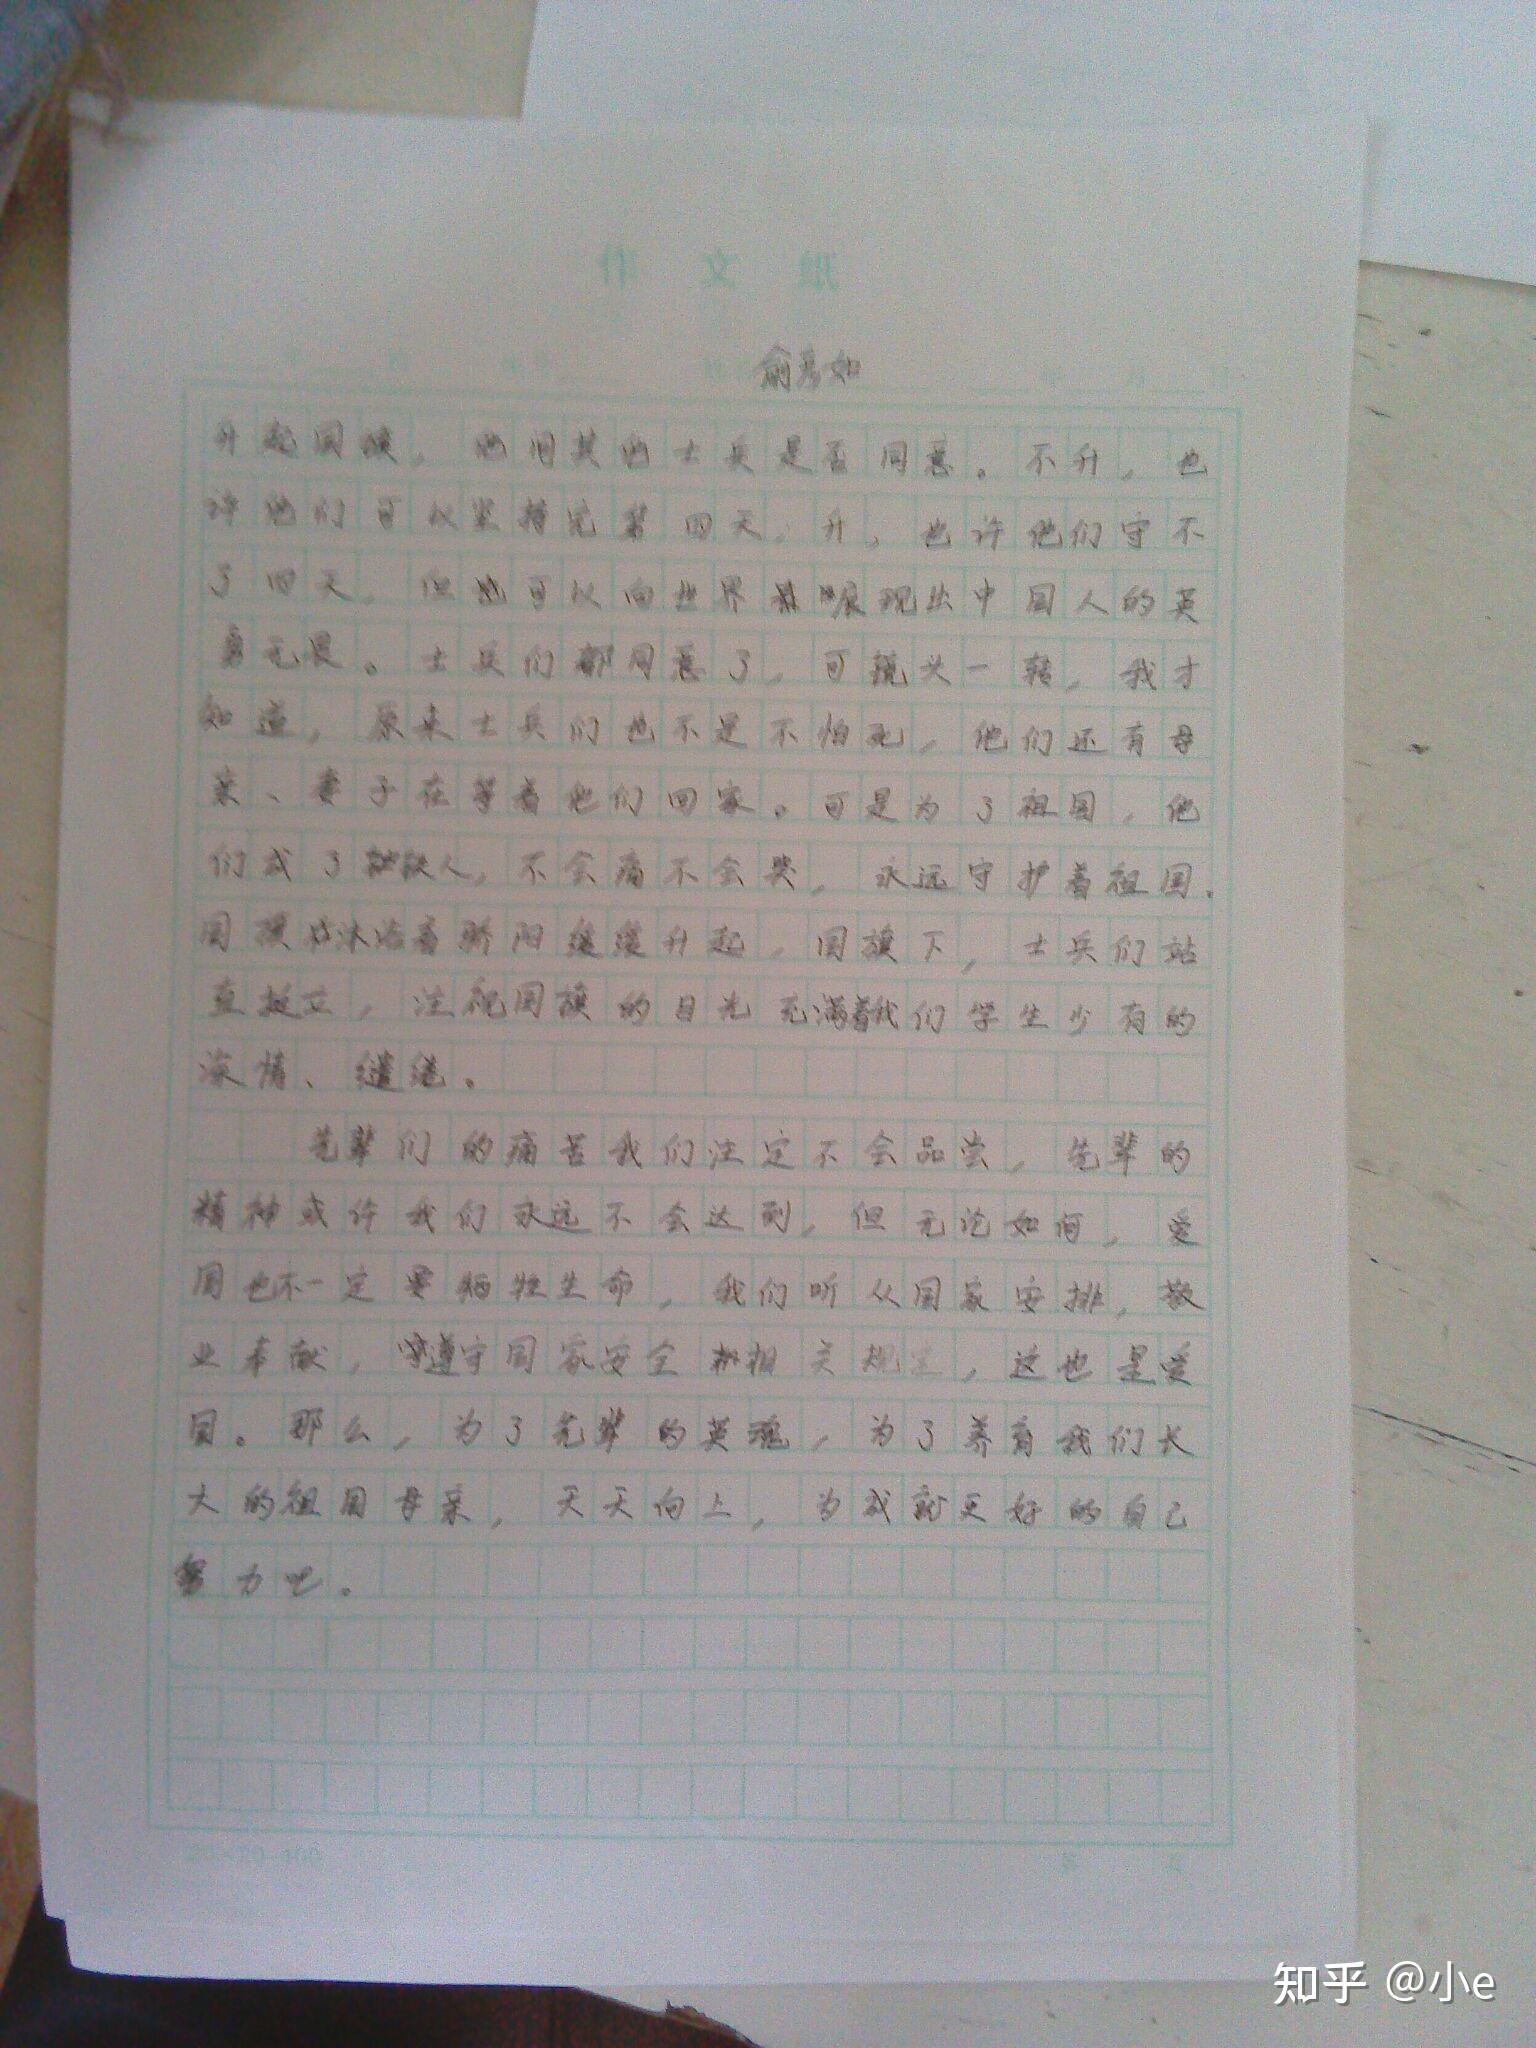 俞彦如
升起国旗，他问其他士兵是否同意。不升，也
许他们可以坚持完第四天，升，也许他们守不
了四天，但也可以向世界展现出中国人的英
勇无畏。士兵们都同意了，可镜头一转，我才
知道，原来士兵们也不是不怕死，他们还有母
亲、妻子在等着他们回家。可是为了祖国，他
们成了铁人，不会痛不会哭，永远守护着祖国。
国旗沐浴着骄阳缓缓升起，国旗下，士兵们站
直挺立，注视国旗的目光充满着我们学生少有的
深情、缱绻。
先辈们的痛苦我们注定不会品尝，先辈的
精神或许我们永远不会达到，但无论如何，爱
国也不一定要牺牲生命，我们听从国家安排，敬
业奉献，遵守国家安全相关规定，这也是爱
国。那么，为了先辈的英魂，为了养育我们长
大的祖国母亲，天天向上，为成就更好的自己
努力吧。
知乎 @小e